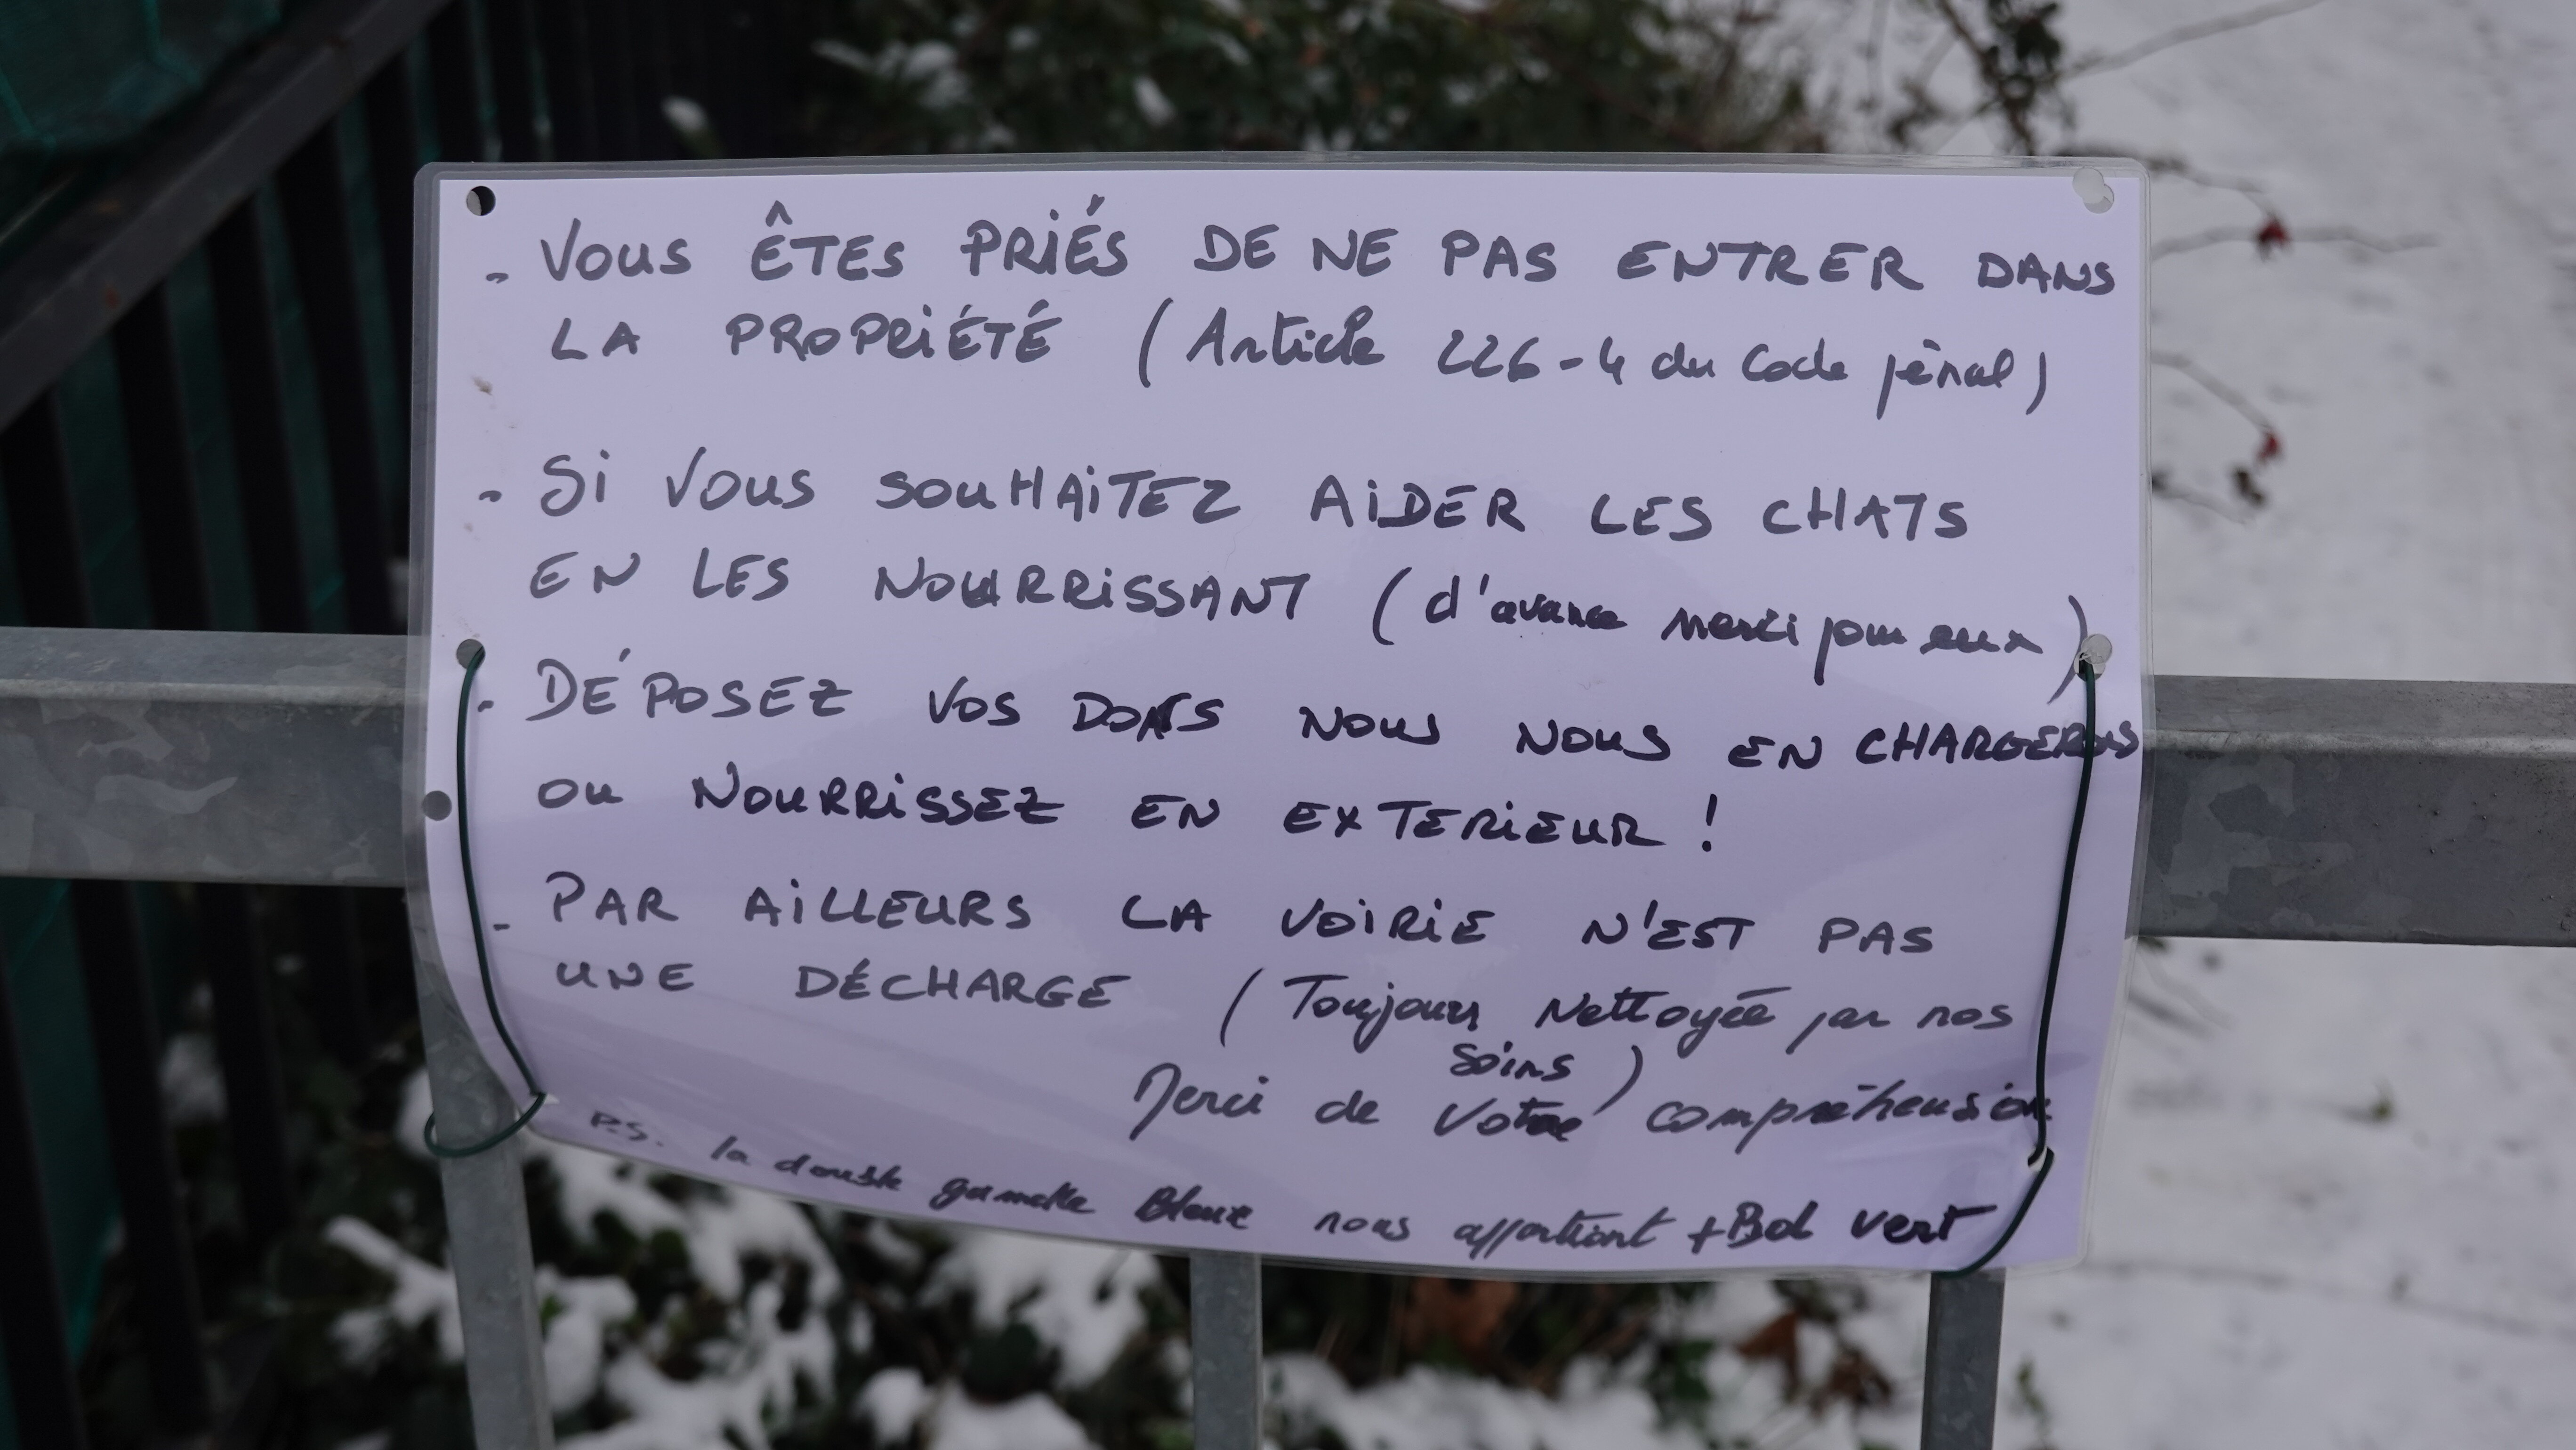 - VOUS ÊTES PRIÉS DE NE PAS ENTRER DANS
LA PROPRIÉTÉ (Article 226-4 du Code pénal)
- Si VOUS SOUHAITEZ AIDER LES CHATS
EN LES NOURRISSANT (d'avance merci pour eux)
- DÉPOSEZ VOS DONS NOUS NOUS EN CHARGERONS
OU NOURRISSEZ EN EXTERIEUR !
- PAR AILLEURS LA VOIRIE N'EST PAS
UNE DÉCHARGE (Toujours Nettoyée par nos
soins)
Merci de votre compréhension
P.S. la double gamelle Bleue nous appartient + Bol vert